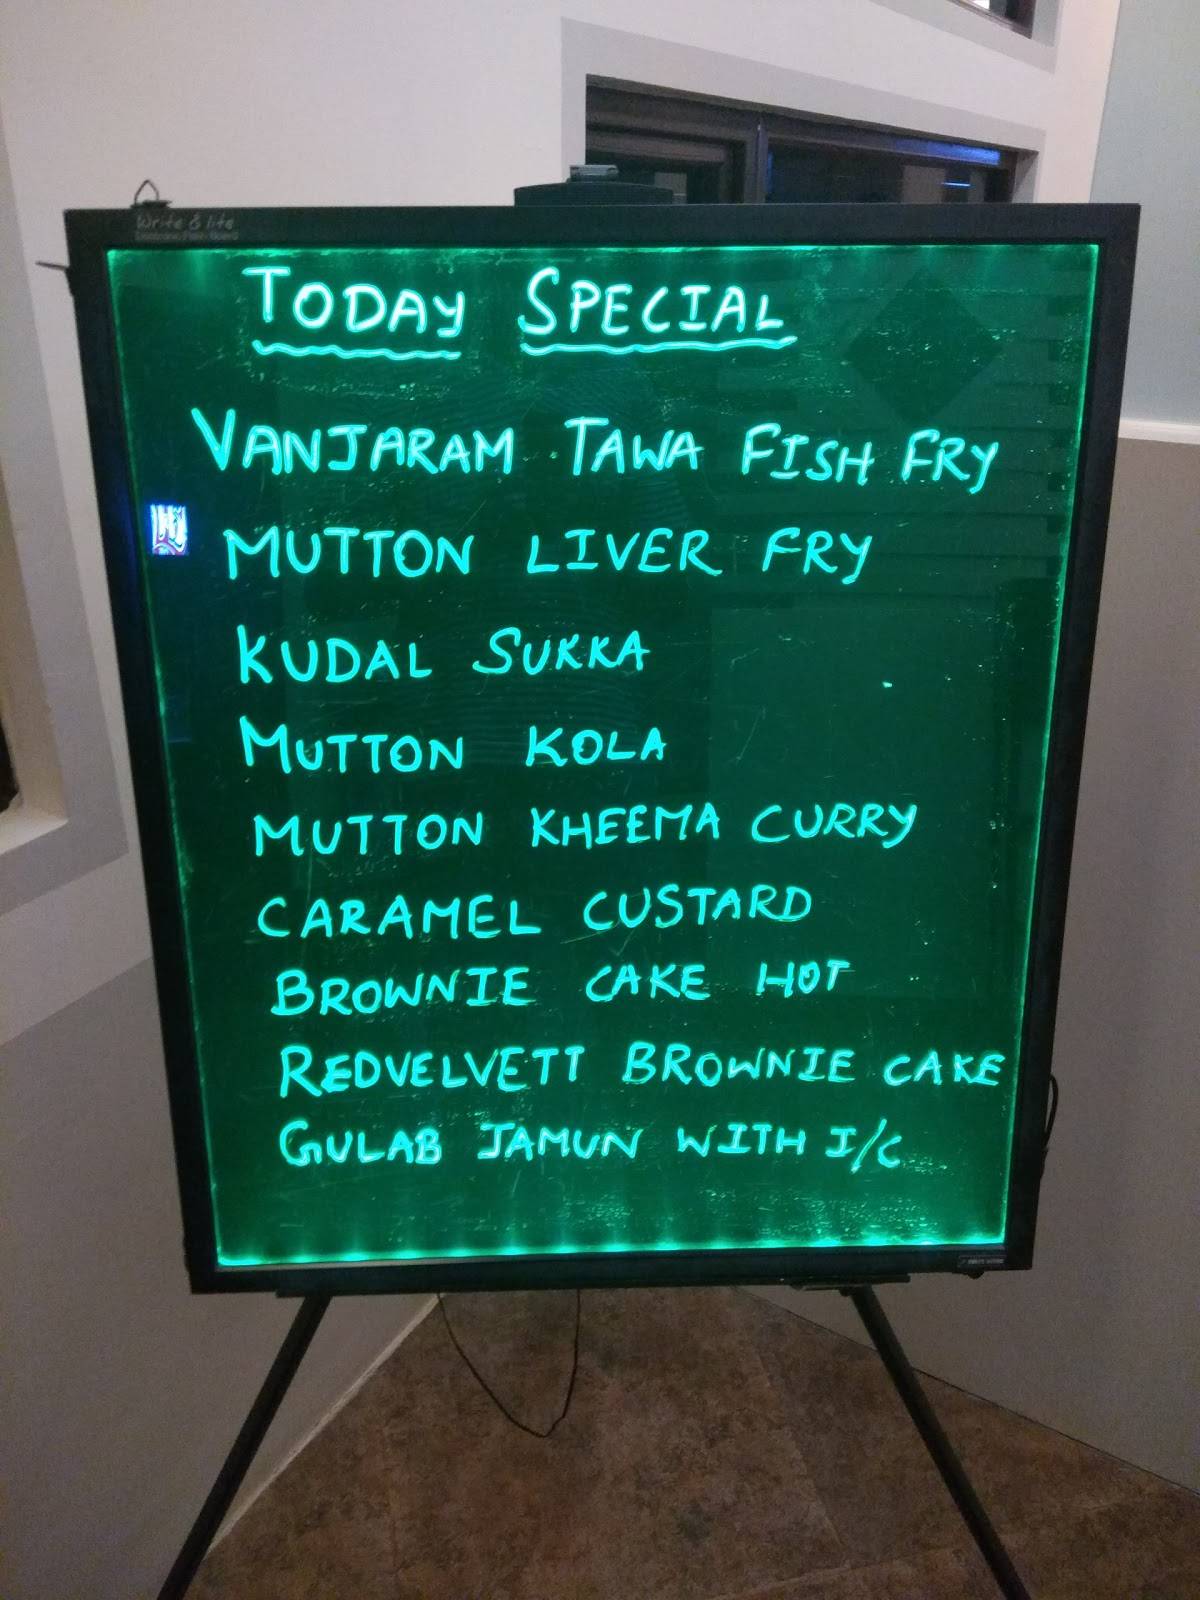 Write & lite
TODAY SPECIAL
VANJARAM TAWA FISH FRY
MUTTON LIVER FRY
KUDAL SUKKA
MUTTON KOLA
MUTTON KHEEMA CURRY
CARAMEL CUSTARD
BROWNIE CAKE HOT
REDVELVETT BROWNIE CAKE
GULAB JAMUN WITH I/C